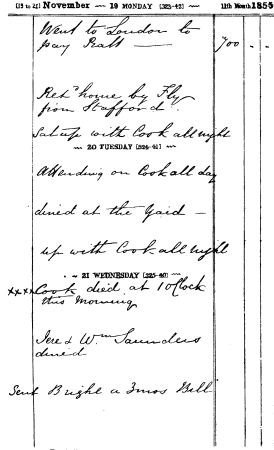 (19 to 21) November — 19 MONDAY (323-42) — 11th Month 1855
Went to London to
pay Pratt — 700 . .
Retd home by Fly
from Stafford.
Sat up with Cook all night
20 TUESDAY (324-41)
Attending on Cook all day
dined at the Yard —
up with Cook all night
21 WEDNESDAY (325-40)
xxxx Cook died at 1 o'Clock
this Morning
Jere & Wm Saunders
dined
Sent Bright a 3mos Bill